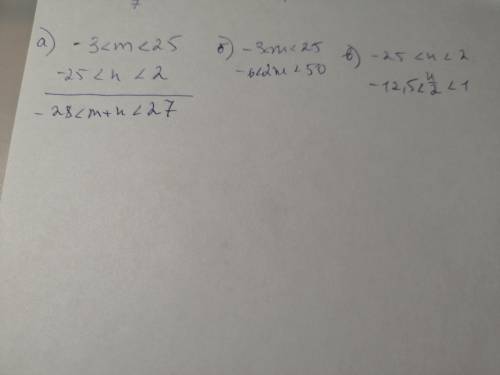 7
а) -3<m<25
-25<n<2
-28<m+n<27
б) -3<m<25
-6<2m<50
в) -25<n<2
-12,5<n/2<1